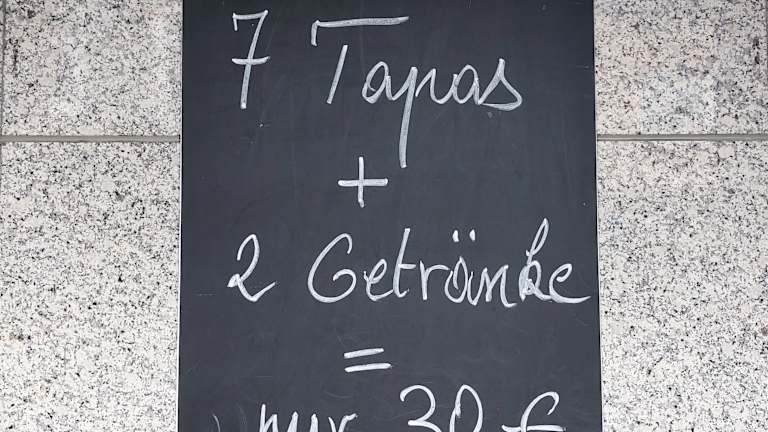 7 Tapas
+
2 Getränke
=
nur 30 €